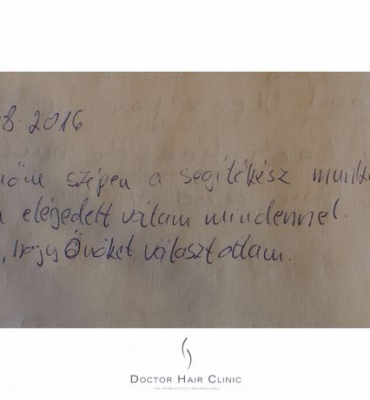 8. 2016
nöm szépen a segitőkész munk
elégedett voltam mindennel.
, hogy Önöket választottam.
DOCTOR HAIR CLINIC